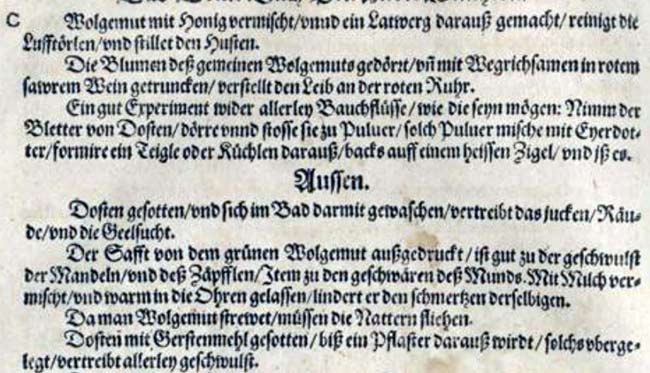 C Wolgemut mit Honig vermischt/vnnd ein Latwerg darauß gemacht/reinigt die
Lufftörlen/vnd stillet den Husten.
Die Blumen deß gemeinen Wolgemuts gedörrt/vñ mit Wegrichsamen in rotem
sawrem Wein getruncken/verstellt den Leib an der roten Ruhr.
Ein gut Experiment wider allerley Bauchflüsse/wie die seyn mögen: Nimm der
Bletter von Dosten/dörre vnnd stosse sie zu Puluer/solch Puluer mische mit Eyerdot-
ter/formire ein Teigle oder Küchlen darauß/backs auff einem heissen Zigel/vnd iß es.
Aussen.
Dosten gesotten/vnd sich im Bad darmit gewaschen/vertreibt das jucken/Räu-
de/vnd die Geelsucht.
Der Safft von dem grünen Wolgemut außgedruckt/ist gut zu der geschwulst
der Mandeln/vnd deß Zäpfflen/Item zu den geschwären deß Munds. Mit Milch ver-
mischt/vnd warm in die Ohren gelassen/lindert er den schmertzen derselbigen.
Da man Wolgemut strewet/müssen die Nattern fliehen.
Dosten mit Gerstenmehl gesotten/biß ein Pflaster darauß wirdt/solchs vberge-
legt/vertreibt allerley geschwulst.